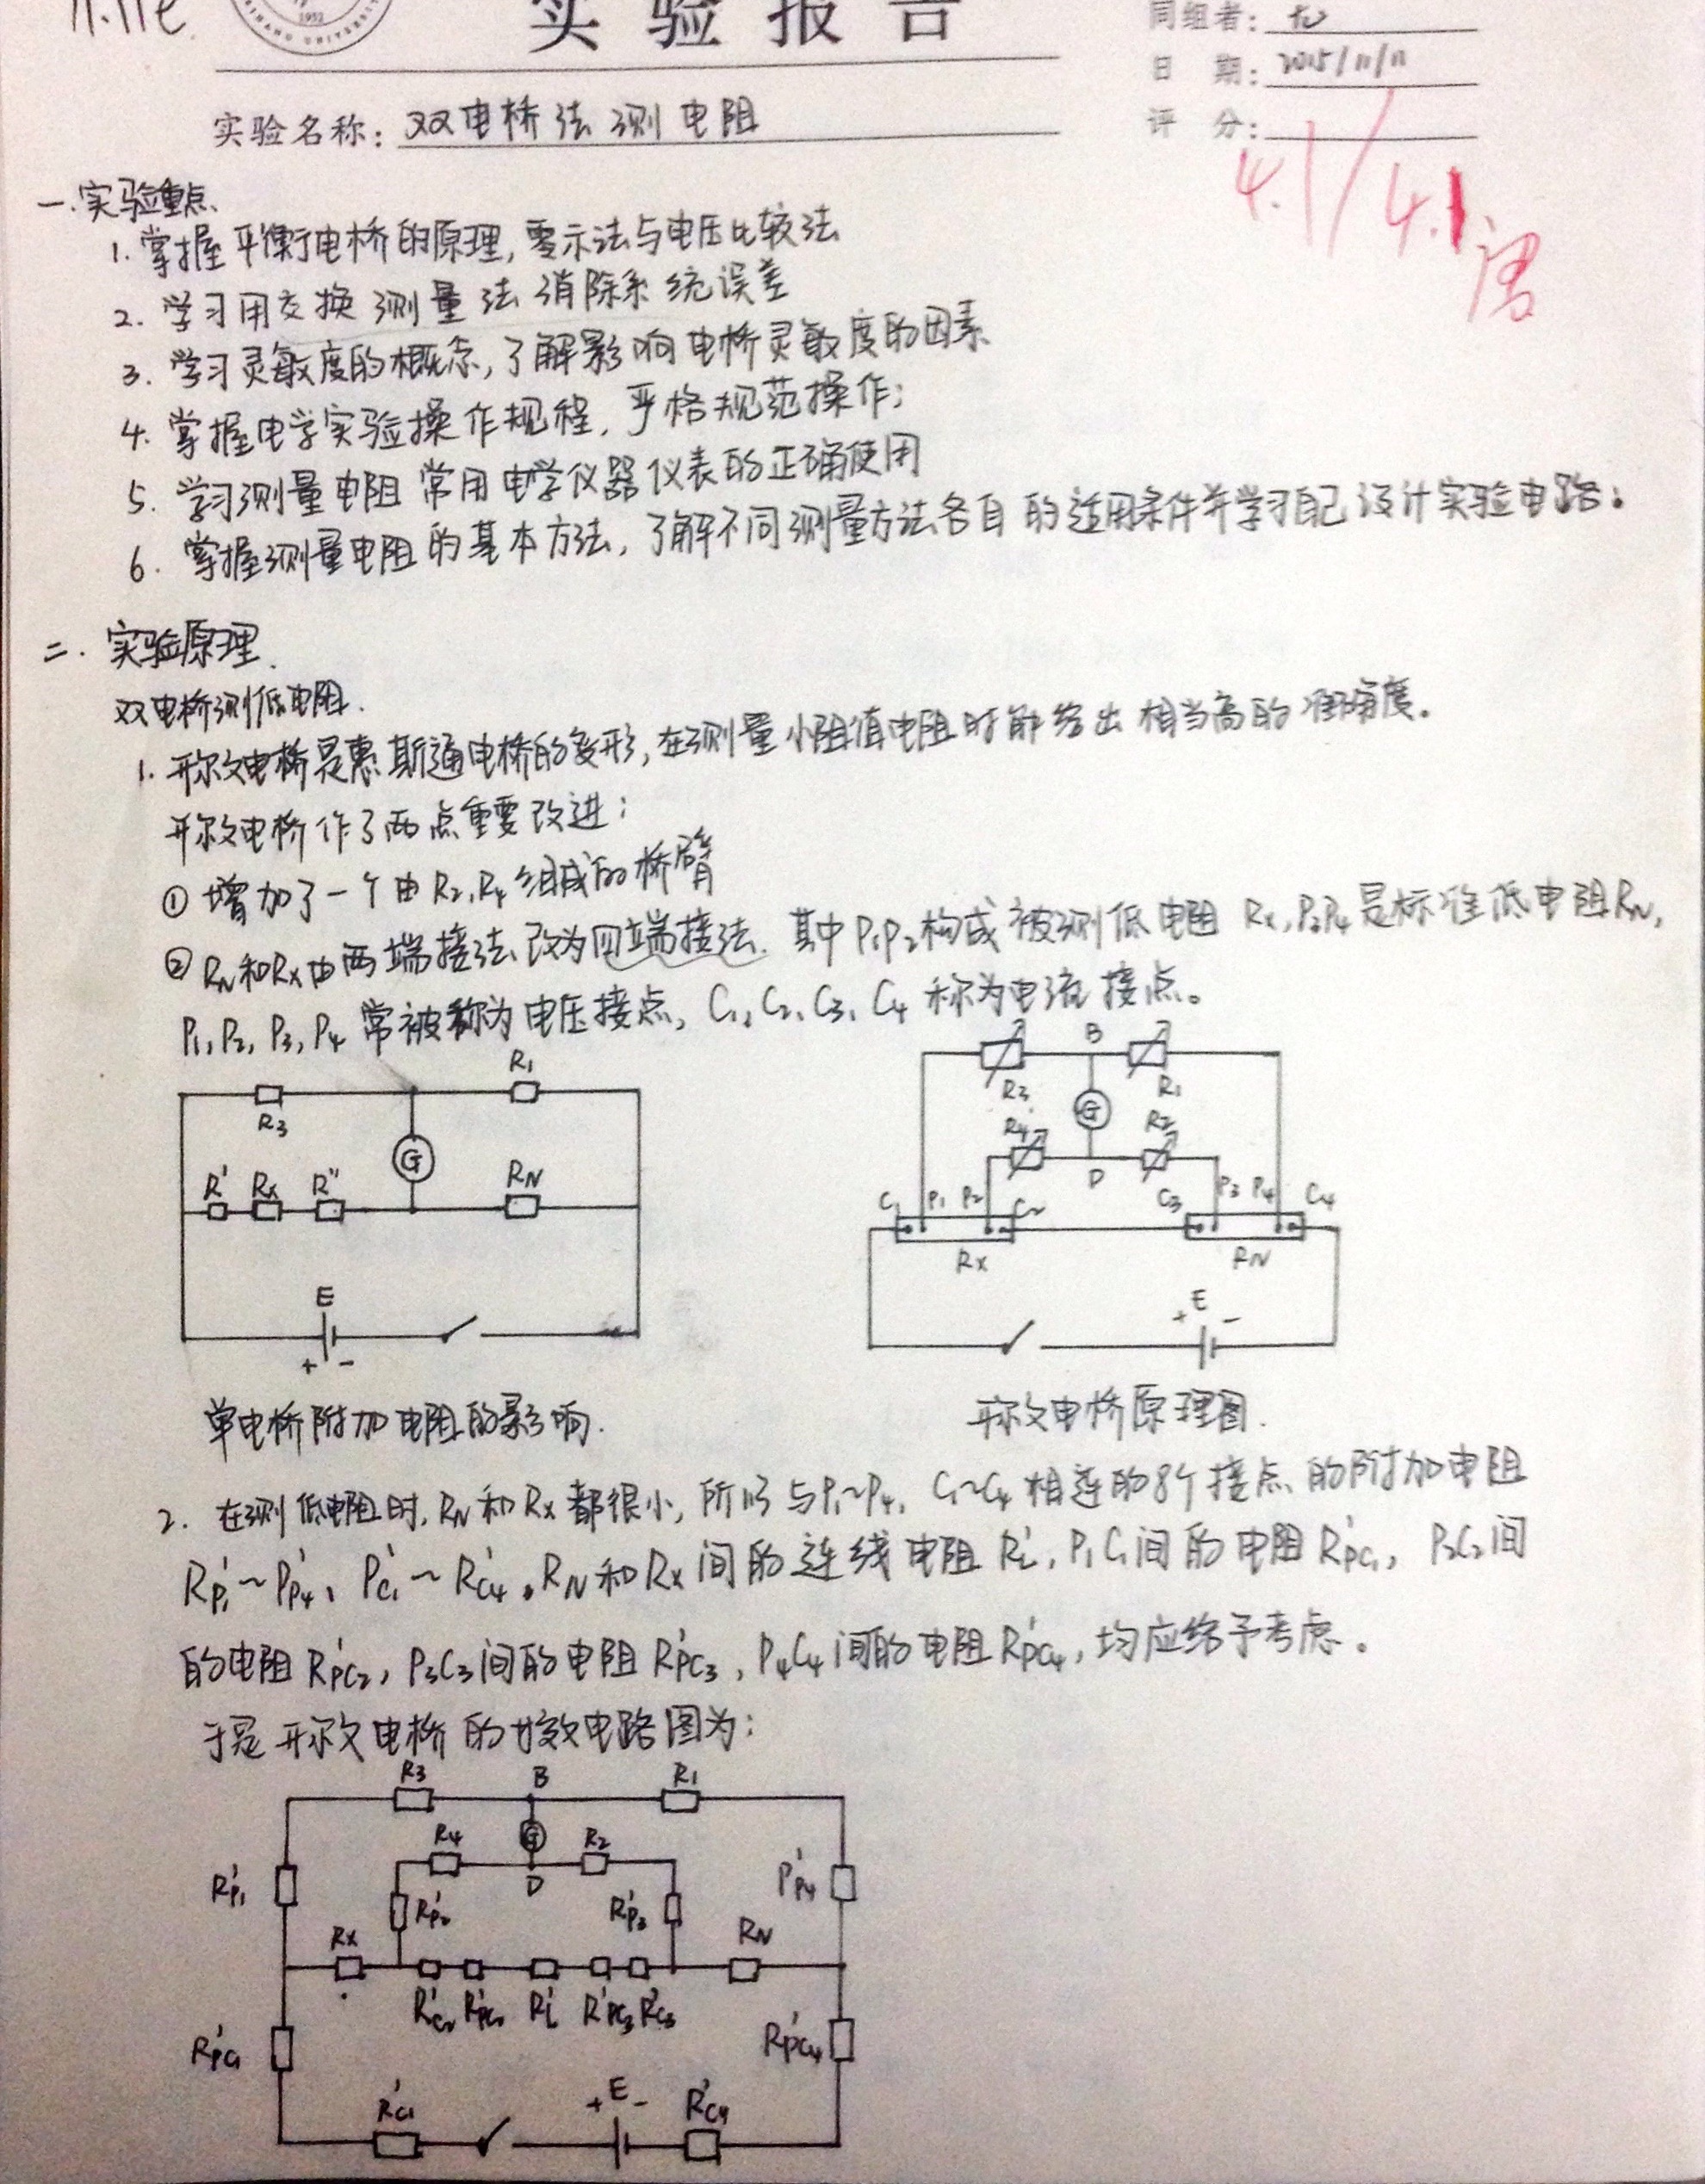 1952
实验报告
同组者: 无
日期: 2015/11/11
评分:
4.1/4.1
实验名称: 双电桥法测电阻
一.实验重点、
1. 掌握平衡电桥的原理, 零示法与电压比较法
2. 学习用交换测量法消除系统误差
3. 学习灵敏度的概念, 了解影响电桥灵敏度的因素
4. 掌握电学实验操作规程, 严格规范操作;
5. 学习测量电阻常用电学仪器仪表的正确使用
6. 掌握测量电阻的基本方法, 了解不同测量方法各自的适用条件并学习自己设计实验电路。
二. 实验原理.
双电桥测低电阻.
1. 开尔文电桥是惠斯通电桥的变形, 在测量小阻值电阻时能给出相当高的准确度。
开尔文电桥作了两点重要改进:
① 增加了一个由R₂,R₄组成的桥臂
② RN和Rx由两端接法改为四端接法. 其中P₁P₂构成被测低电阻Rx, P₃P₄是标准低电阻RN,
P₁, P₂, P₃, P₄ 常被称为电压接点, C₁、C₂、C₃、C₄ 称为电流接点。
R₁
R₃
G
R' Rx R'' RN
E
+ -
B
R₃ R₁
G
R₄ R₂
D
C₁ P₁ P₂ C₂ C₃ P₃ P₄ C₄
Rx RN
E
+ -
单电桥附加电阻的影响.
开尔文电桥原理图.
2. 在测低电阻时, RN和Rx都很小, 所以与P₁~P₄, C₁~C₄相连的8个接点的附加电阻
R'P₁~P'P₄、P'C₁~R'C₄, RN和Rx间的连线电阻R'L, P₁C₁间的电阻R'PC₁, P₂C₂间
的电阻R'PC₂, P₃C₃间的电阻R'PC₃, P₄C₄间的电阻R'PC₄, 均应给予考虑。
于是开尔文电桥的等效电路图为:
R₃ B R₁
R₄ G R₂
D
R'P₁ R'P₂ R'P₃ P'P₄
Rx RN
R'C₂ R'PC₂ R'L R'PC₃ R'C₃
R'PC₁ R'PC₄
R'C₁ +E- R'C₄